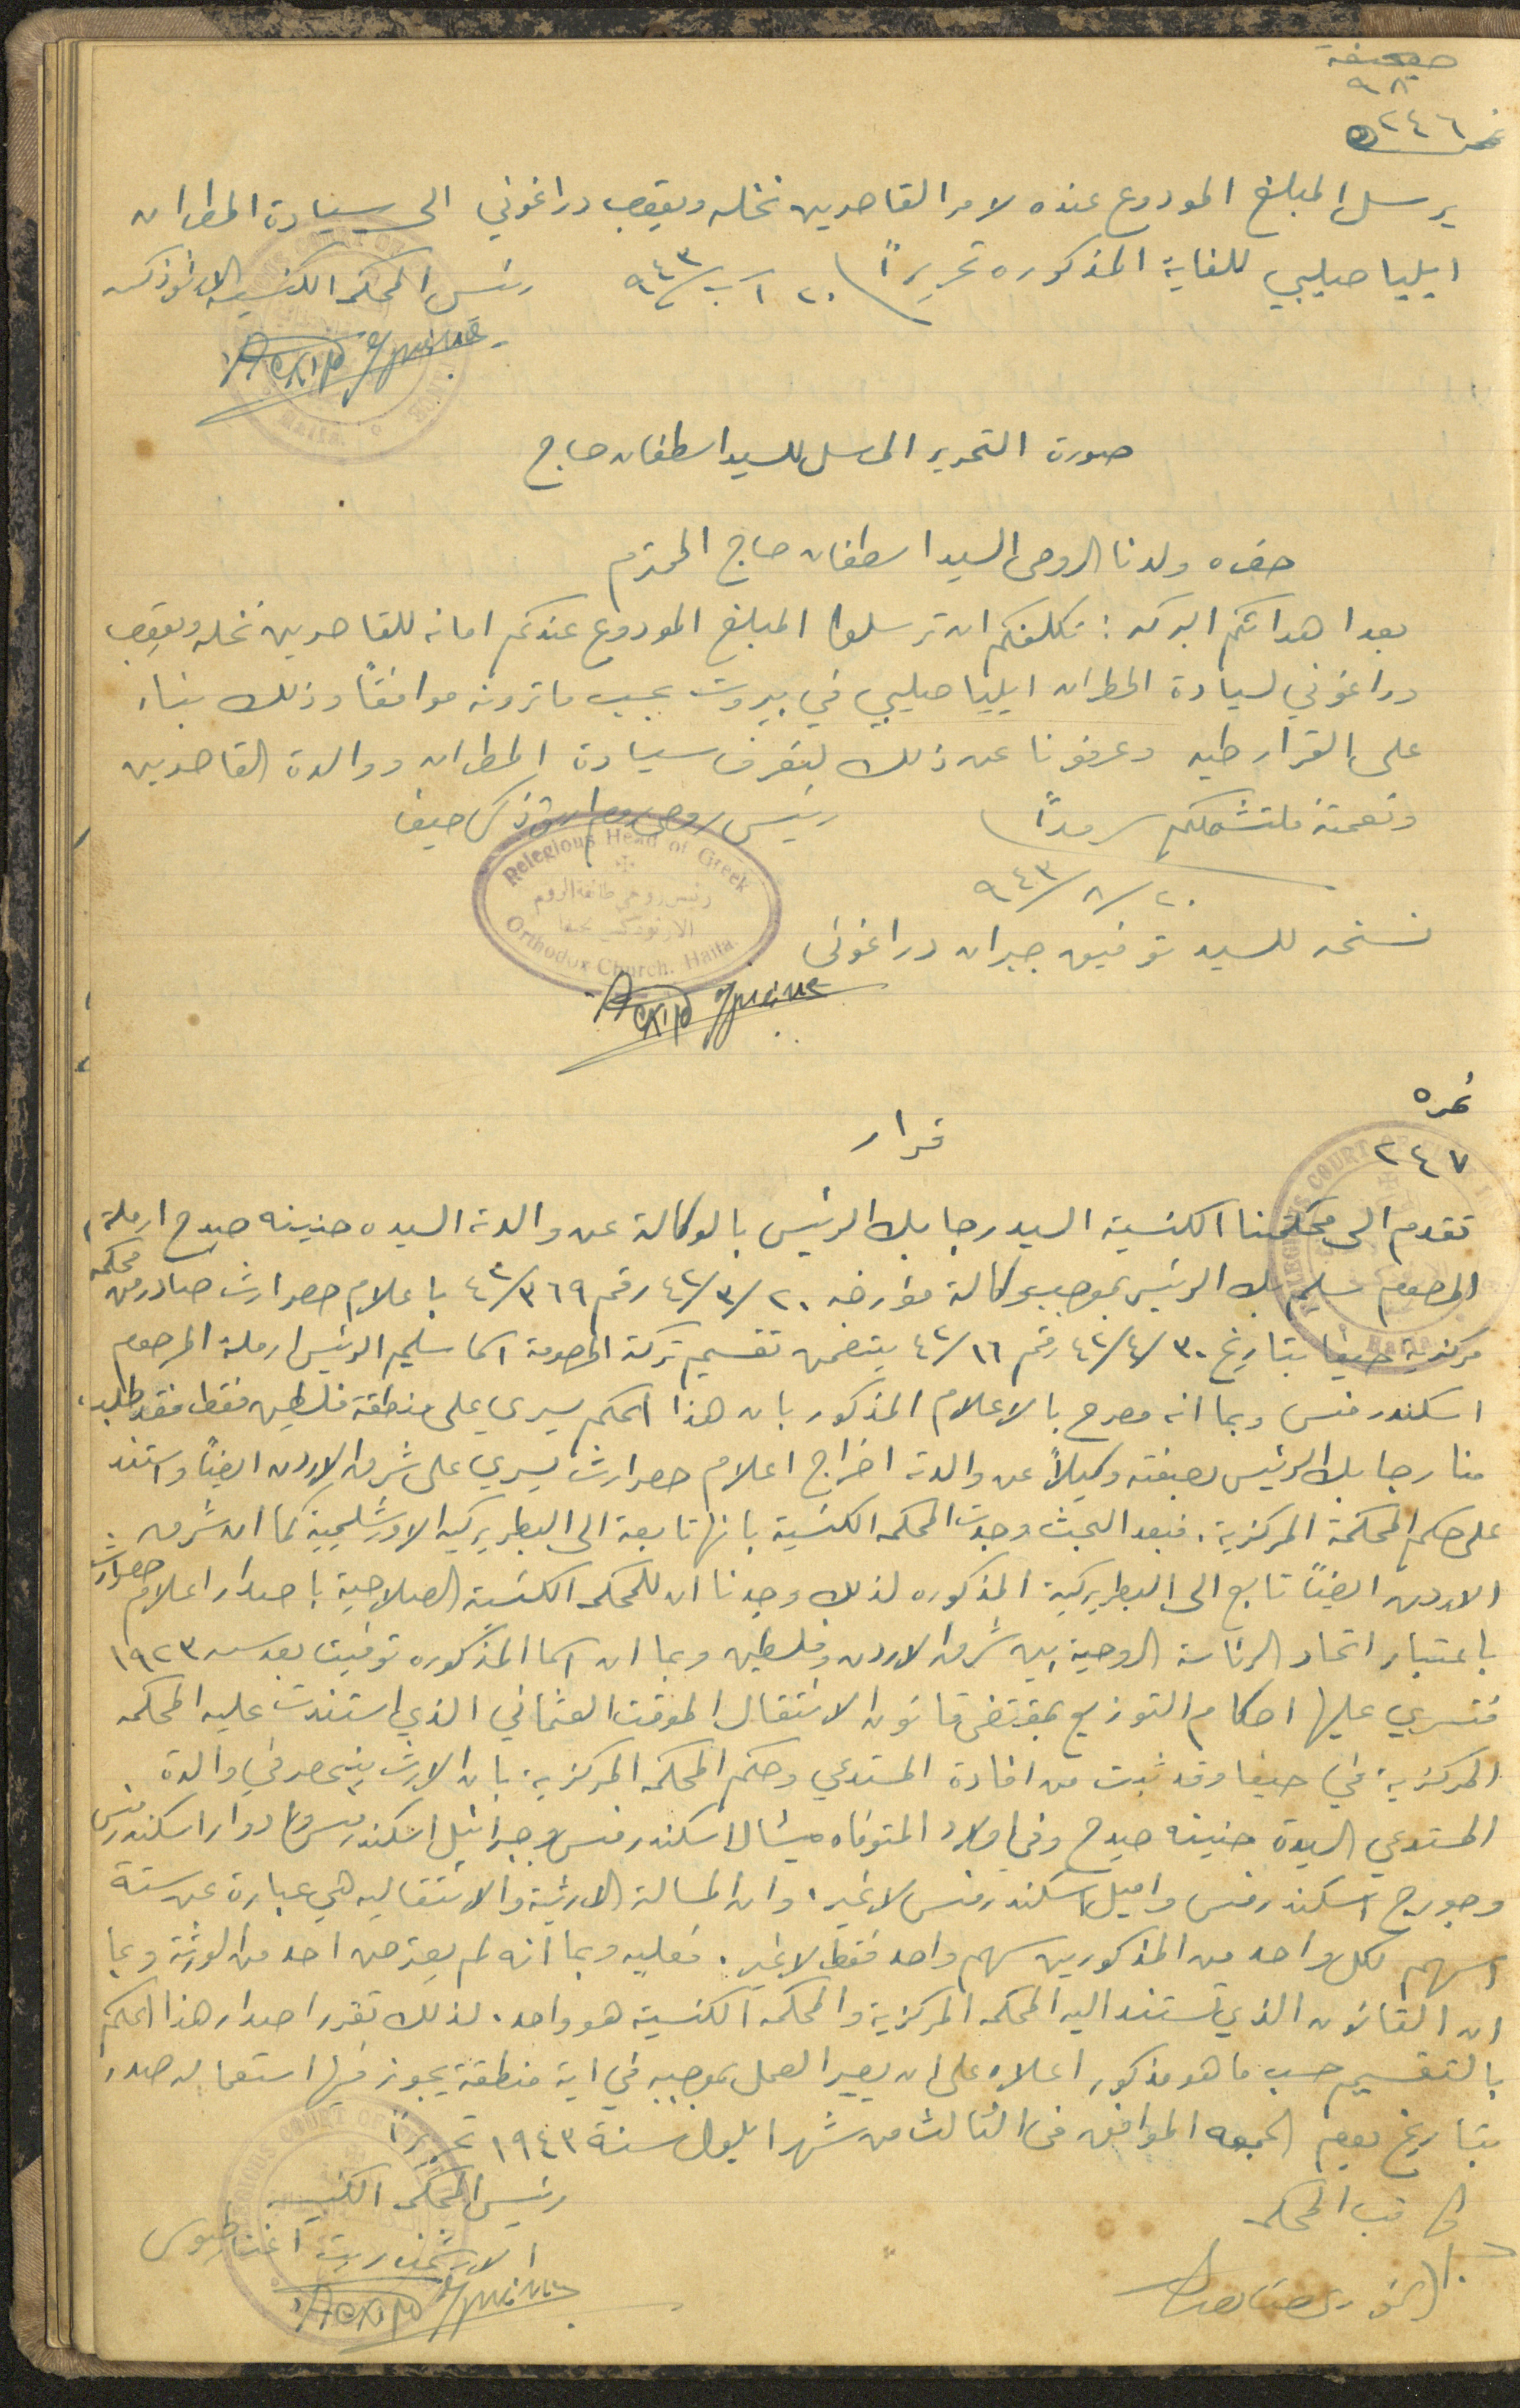 صحيفة
٩٨
نمرة ٢٤٦
يرسل المبلغ المودوع عنده لامر القاصرين نخله ويعقوب دراغوني الى سيادة المطران
ايليا صليبي للغاية المذكوره تحريراً ٢٠ آب ٩٤٣ رئيس المحكمة الكنسية الارثوذكسية
صورة التحرير المرسل للسيد اسطفان حاج
حضرة ولدنا الروحي السيد اسطفان حاج المحترم
بعد اهدائكم البركه : نكلفكم ان ترسلوا المبلغ المودوع عندكم امانه للقاصرين نخله ويعقوب
دراغوني لسيادة المطران ايليا صليبي في بيروت بحسب ما ترونه موافقاً وذلك بناء
على القرار طيه وعرفونا عن ذلك ليعرف سيادة المطران ووالدة القاصرين
ونعمته فلتشملكم سرمداً رئيس روحي روم ارثوذكس حيفا
٢٠/٨/٩٤٣
Relegious Head of Greek
رئيس روحي طائفة الروم
الارثوذكس بحيفا
Orthodox Church. Haifa.
نسخه للسيد توفيق جبران دراغوني
نمره
٢٤٧
قرار
تقدم الى محكمتنا الكنسية السيد رجا بك الرئيس بالوكالة عن والدته السيده حنينه صيدح ارملة
المرحوم سليم بك الرئيس بموجب وكالة مؤرخه ٢٠/٣/٤٢ رقم ٣٦٩/٤٢ باعلام حصر ارث صادر من محكمة
مركزية حيفا بتاريخ ٣٠/٤/٤٢ رقم ١٦/٤٢ يتضمن تقسيم تركة المرحومة اسما سليم الرئيس ارملة المرحوم
اسكندر منسى وبما انه مصرح بالاعلام المذكور بان هذا الحكم يسري على منطقة فلسطين فقط فقد طلب
منا رجا بك الرئيس بصفته وكيلاً عن والدته اخراج اعلام حصر ارث يسري على شرق الاردن ايضاً واستند
على حكم المحكمة المركزية. فبعد البحث وجدت المحكمه الكنسية بانها تابعة الى البطريركيه الاورشليمية كما ان شرق
الاردن ايضاً تابع الى البطريركية المذكوره لذلك وجدنا ان للمحكمه الكنسية الصلاحية باصدار اعلام حصر ارث
باعتبار اتحاد الرئاسة الروحية بين شرق الاردن وفلسطين وبما ان اسما المذكوره توفيت بعد سنه ١٩٢٣
فتسري عليها احكام التوزيع بمقتضى قانون الانتقال الموقت العثماني الذي استندت عليه المحكمه
المركزية في حيفا وقد ثبت من افادة المستدعي وحكم المحكمه المركزية بان الارث ينحصر في والدة
المستدعي السيدة حنينه صيدح وفي اولاد المتوفاه ميشال اسكندر منسى وجبرائيل اسكندر منسى وادوار اسكندر منسى
وجورج اسكندر منسى واميل اسكندر منسى لا غير. وان المسالة الارثية والانتقاليه هي عبارة عن ستة
اسهم لكل واحد من المذكورين سهم واحد فقط لا غير. فعليه وبما انه لم يعترض احد من الورثة وبما
ان القانون الذي تستند اليه المحكمه المركزية والمحكمه الكنسية هو واحد. لذلك تقرر اصدار هذا الحكم
بالتقسيم حسب ما هو مذكور اعلاه على ان يصير العمل بموجبه في اية منطقة يجوز فيها استعماله صدر
بتاريخ يوم الجمعه الموافق في الثالث من شهر ايلول سنة ١٩٤٣ تحريراً
كاتب المحكمه رئيس المحكمه الكنسيه
الارشمندريت اغناطيوس